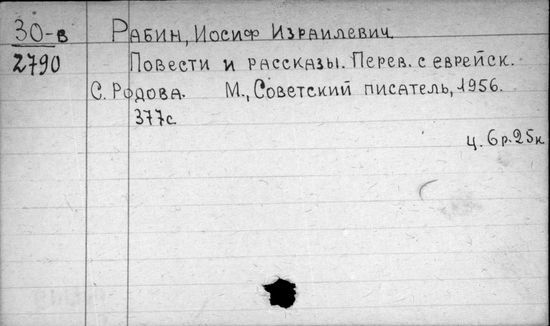 30-в Рабин, Иосиф Израилевич.
2790 Повести и рассказы. Перев. с еврейск.
С. Родова. М., Советский писатель, 1956.
377с.
ц. 6р.25к